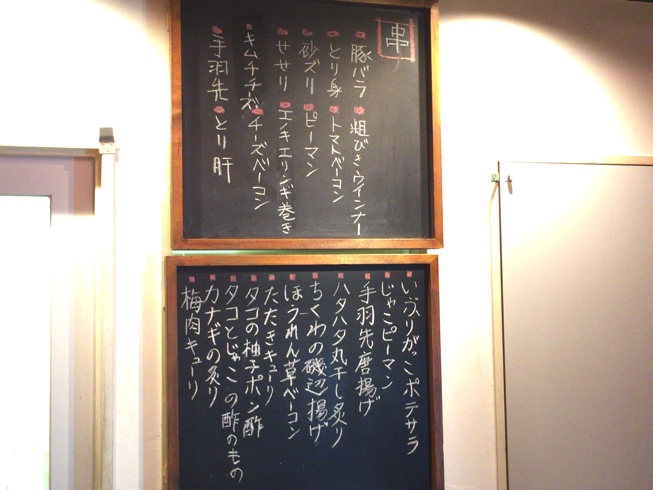 串
豚バラ
粗びきウインナー
とり身
トマトベーコン
砂ズリ
ピーマン
せせり
エノキエリンギ巻き
キムチチーズ
チーズベーコン
手羽先
とり肝
いぶりがっこポテサラ
じゃこピーマン
手羽先唐揚げ
ハタハタ丸干し炙り
ちくわの磯辺揚げ
ほうれん草ベーコン
たたきキューリ
タコの柚子ポン酢
タコとじゃこの酢のもの
カナギの炙り
梅肉キューリ